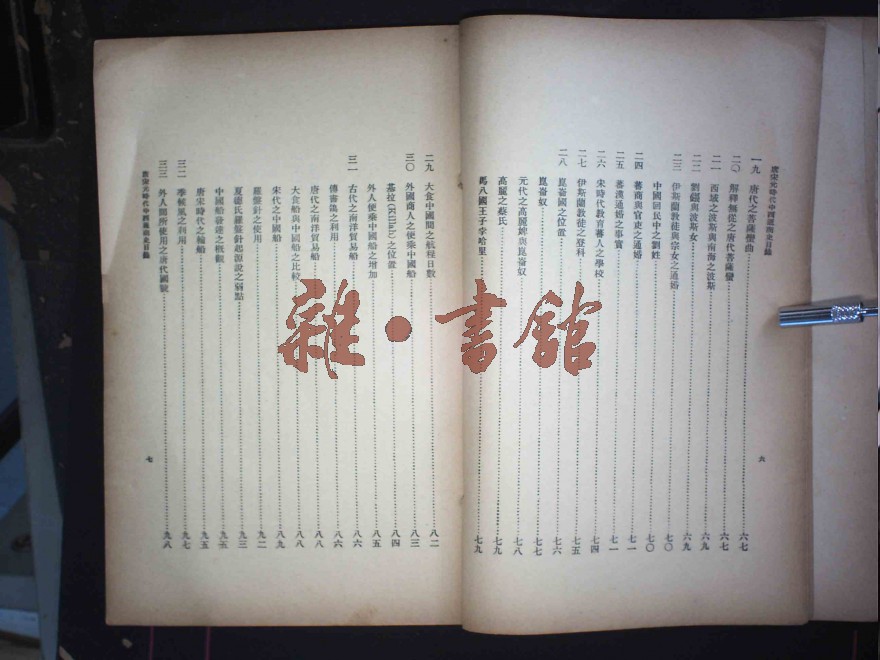 唐宋元時代中西通商史目錄
一九 唐代之菩薩蠻曲 六七
二〇 解釋無從之唐代菩薩蠻 六七
二一 西域之波斯與南海之波斯 六九
二二 劉鋹與波斯女 六九
二三 伊斯蘭教徒與宗女之通婚 七〇
中國回民中之劉姓 七〇
二四 蕃商與官吏之通婚 七一
二五 蕃漢通婚之事實 七一
二六 宋時代教育蕃人之學校 七四
二七 伊斯蘭教徒之登科 七五
二八 崑崙國之位置 七六
崑崙奴 七七
元代之高麗婢與崑崙奴 七八
高麗之蔡氏 七九
馬八國王子孛哈里 七九
六
二九 大食中國間之航程日數 八二
三〇 外國商人之便乘中國船 八三
基拉(Killah)之位置 八四
外人便乘中國船之增加 八五
三一 古代之南洋貿易船 八六
傳書鴿之利用 八六
唐代之南洋貿易船 八八
大食船與中國船之比較 八八
宋代之中國船 八九
羅盤針之使用 九二
夏德氏羅盤針起源說之弱點 九三
中國船發達之概觀 九五
唐宋時代之輪船 九五
三二 季候風之利用 九七
三三 外人間所使用之唐代國號 九八
唐宋元時代中西通商史目錄
七
雜·書館